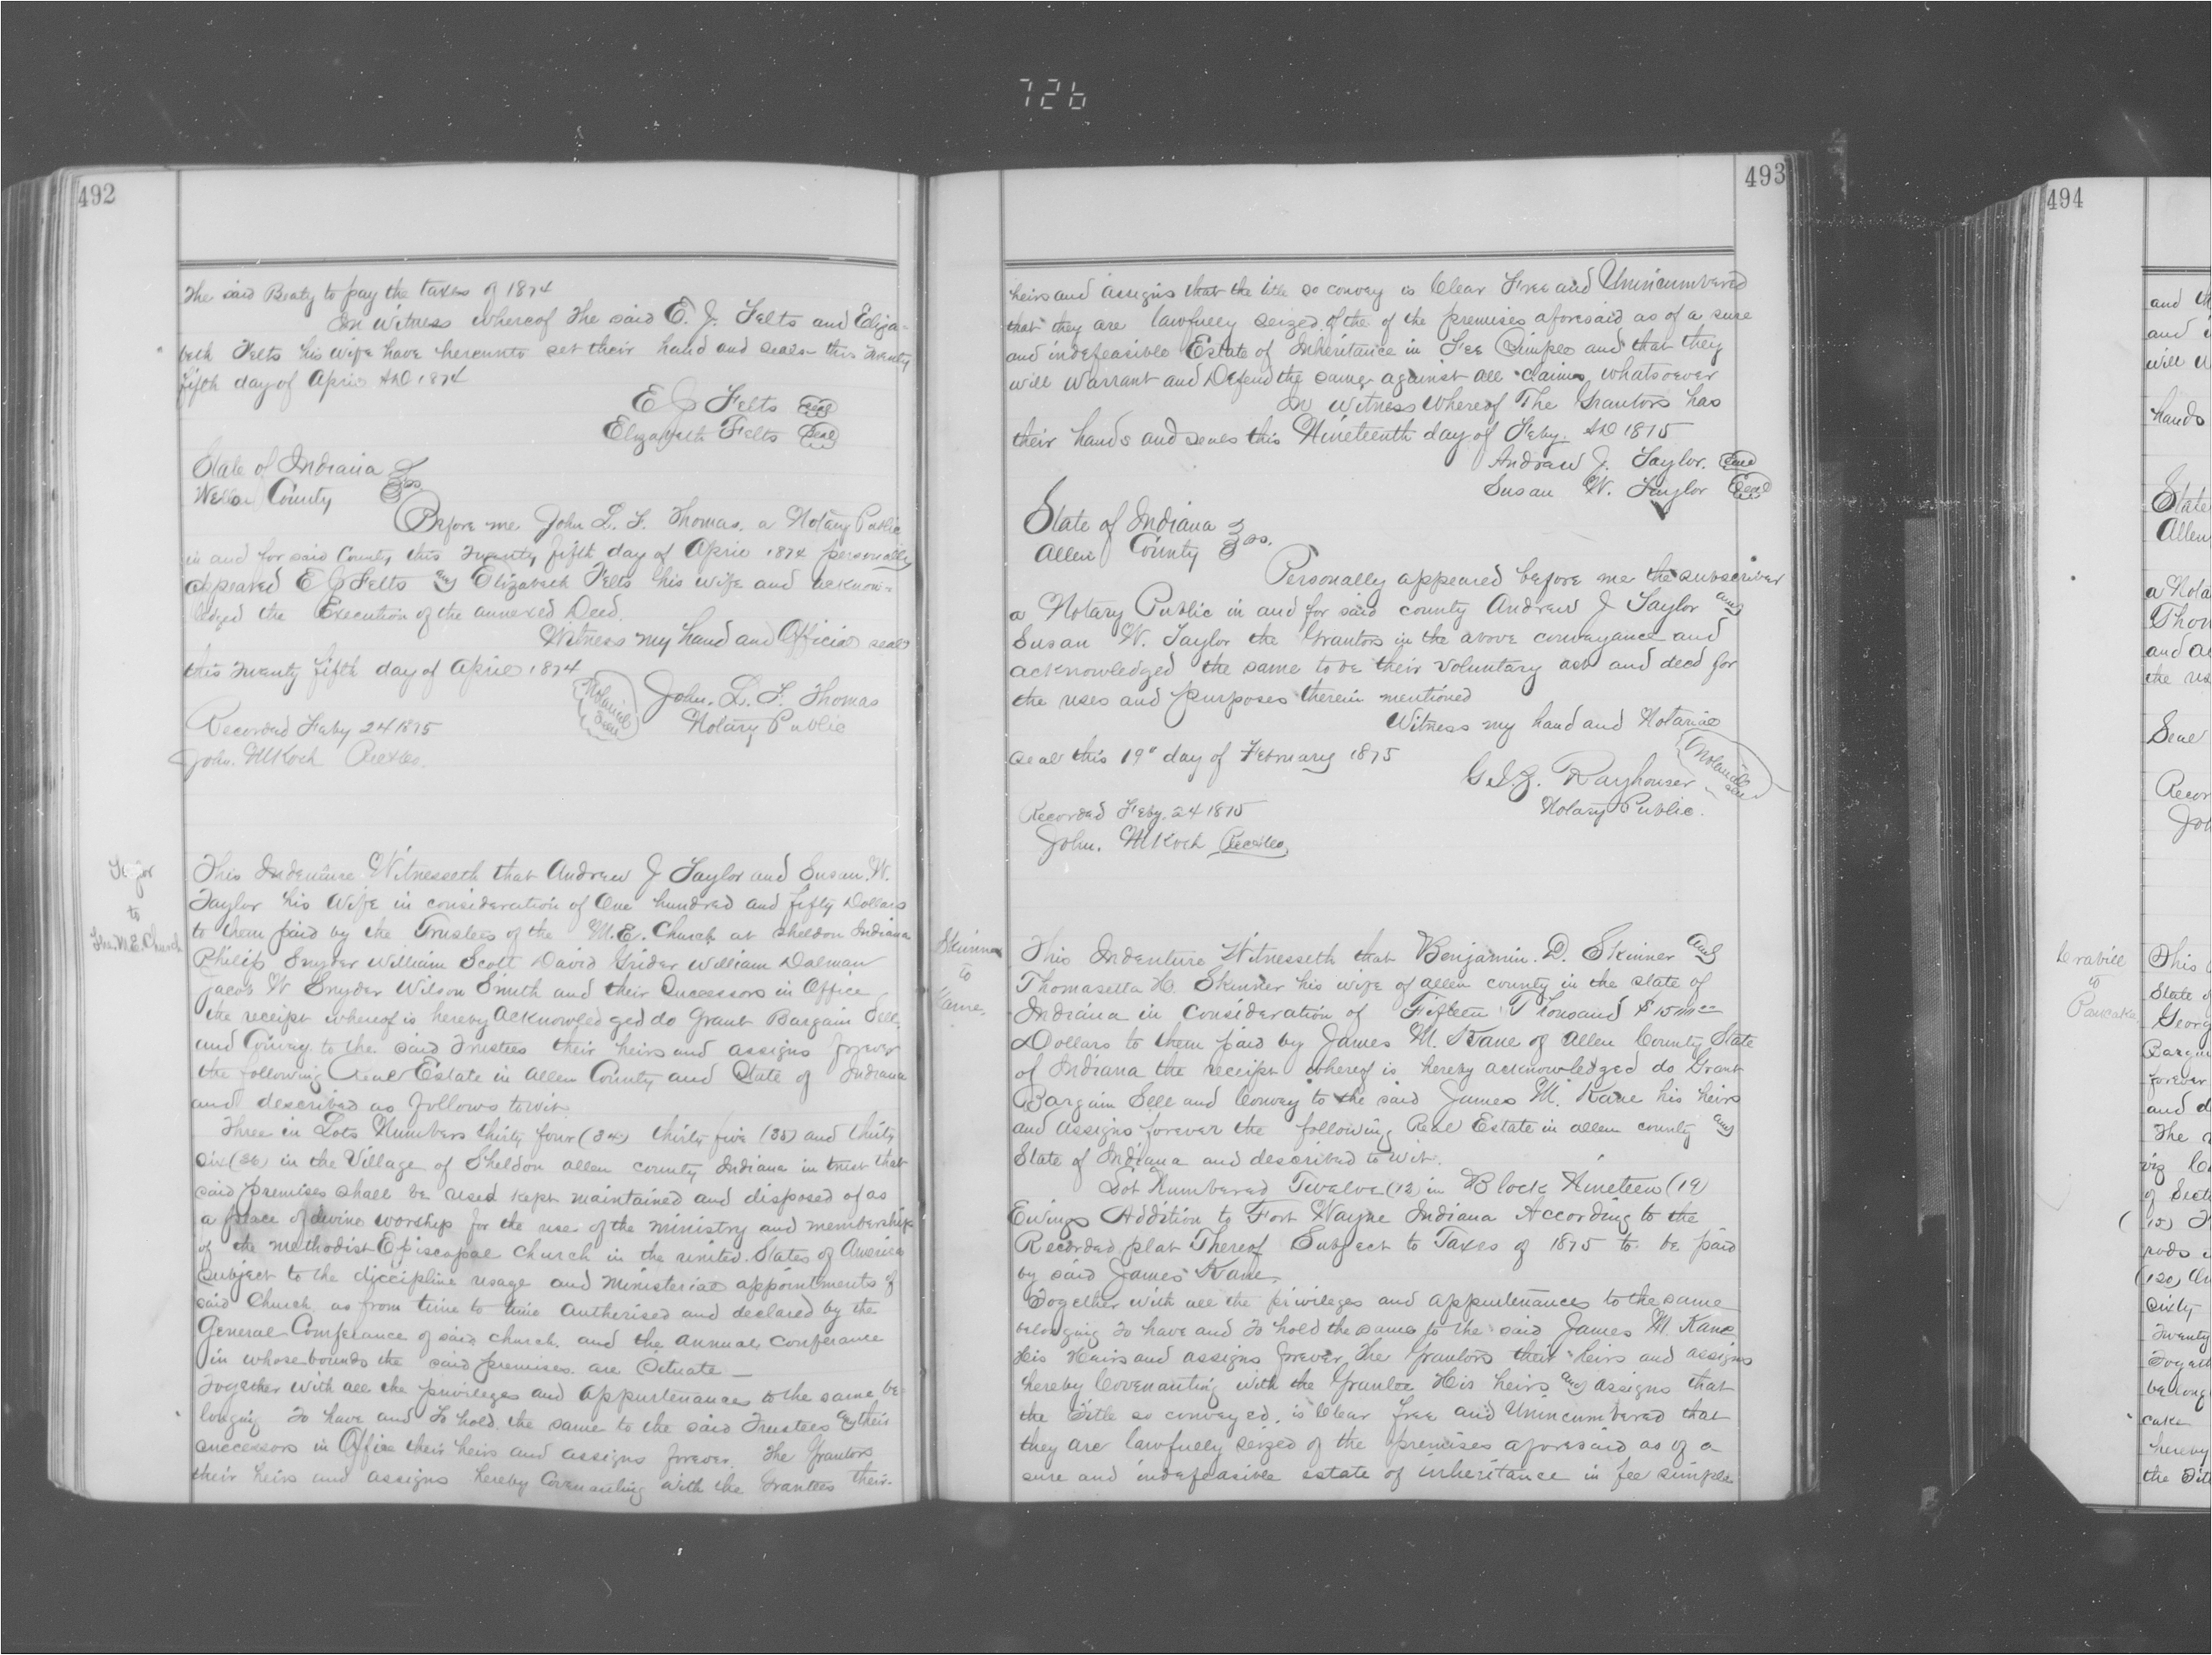 726
492
The said Beaty to pay the taxes of 1874
In witness whereof The said E. J. Felts and Eliza-
beth Felts his wife have hereunto set their hand and seals this Twenty
fifth day of April AD 1874
E J Felts Seal
Elizabeth Felts Seal
State of Indiana
Wells County ss
Before me John L. F. Thomas, a Notary Public
in and for said County this Twenty fifth day of April 1874 personally
appeared E J Felts and Elizabeth Felts his wife and acknow-
ledged the Execution of the annexed Deed.
Witness my hand and Official seal
this Twenty fifth day of April 1874
Notarial Seal
John. L. F. Thomas
Notary Public
Recorded Feby 24 1875
John. M Koch
Taylor
to
The M.E. Church
This Indenture Witnesseth that Andrew J Taylor and Susan. W.
Taylor his Wife in consideration of One hundred and fifty Dollars
to them paid by the Trustees of the M.E. Church at Sheldon Indiana
Philip Snyder William Scott David Grider William Dalman
Jacob W Snyder Wilson Smith and their Successors in Office
the receipt whereof is hereby acknowledged do Grant Bargain Sell
and Convey to the said Trustees their heirs and assigns forever
the following Real Estate in Allen County and State of Indiana
and described as follows to wit
Three in Lots Numbers thirty four (34) thirty five (35) and thirty
six (36) in the Village of Sheldon Allen county Indiana in trust that
said premises shall be used kept maintained and disposed of as
a place of divine worship for the use of the ministry and membership
of the Methodist Episcopal Church in the united States of America
Subject to the diccipline usage and Ministerial appointments of
said Church as from time to time Autherised and declared by the
General Conferance of said church and the annual Conferance
in whose bounds the said premises are Situate
Together with all the privileges and appurtenances to the same be-
longing To have and To hold the same to the said Trustees & their
successors in Office their heirs and assigns forever. The Grantors
their heirs and assigns hereby Covenanting with the Grantees their
493
heirs and assigns that the title so convey is Clear Free and Unincumbered
that they are lawfully seized of the of the premises aforesaid as of a sure
and indefeasible Estate of Inheritance in Fee Simple and that they
will Warrant and Defend the same against all claims whatsoever
In witness whereof The Grantors has
their hands and seals this Nineteenth day of Feby. AD 1875
Andrew J. Taylor. Seal
Susan W. Taylor Seal
State of Indiana
Allen County ss.
Personally appeared before me the subscriber
a Notary Public in and for said county Andrew J Taylor and
Susan W. Taylor the Grantors in the above conveyance and
acknowledged the same to be their voluntary act and deed for
the uses and purposes therein mentioned
Witness my hand and Notarial
seal this 19" day of February 1875
Notarial Seal
Rayhouser
Notary Public.
Recorded Feby. 24 1875
John. M Koch
Skinner
to
Kane.
This Indenture Witnesseth that Benjamin. D. Skinner and
Thomasetta H. Skinner his wife of allen county in the state of
Indiana in Consideration of Fifteen Thousand
Dollars to them paid by James M. Kane of Allen County State
of Indiana the receipt whereof is hereby acknowledged do Grant
Bargain Sell and Convey to the said James M. Kane his heirs
and assigns forever the following Real Estate in allen county and
State of Indiana and described to wit.
Lot Numbered Twelve (12) in Block Nineteen (19)
Ewings Addition to Fort Wayne Indiana According to the
Recorded plat Thereof Subject to Taxes of 1875 to be paid
by said James Kane.
Together with all the privileges and appurtenances to the same
belonging To have and To hold the same to the said James M. Kane
His Heirs and assigns forever The Grantors their heirs and assigns
hereby Covenanting with the Grantee His heirs and assigns that
the Title so conveyed. is Clear free and Unincumbered that
they are lawfully seized of the premises aforesaid as of a
sure and indefeasible estate of inheritance in fee simple
494
to
Pancake
This
State of
Georg
Bargain
forever
and d
The
viz
of Sect
(15)
rods
(120)
Sixty
Twenty
Togeth
belong
cake
hereby
the Titl
and
and
will
hands
State
Allen
a Nota
Thom
and ac
the us
Seal
Recor
Joh